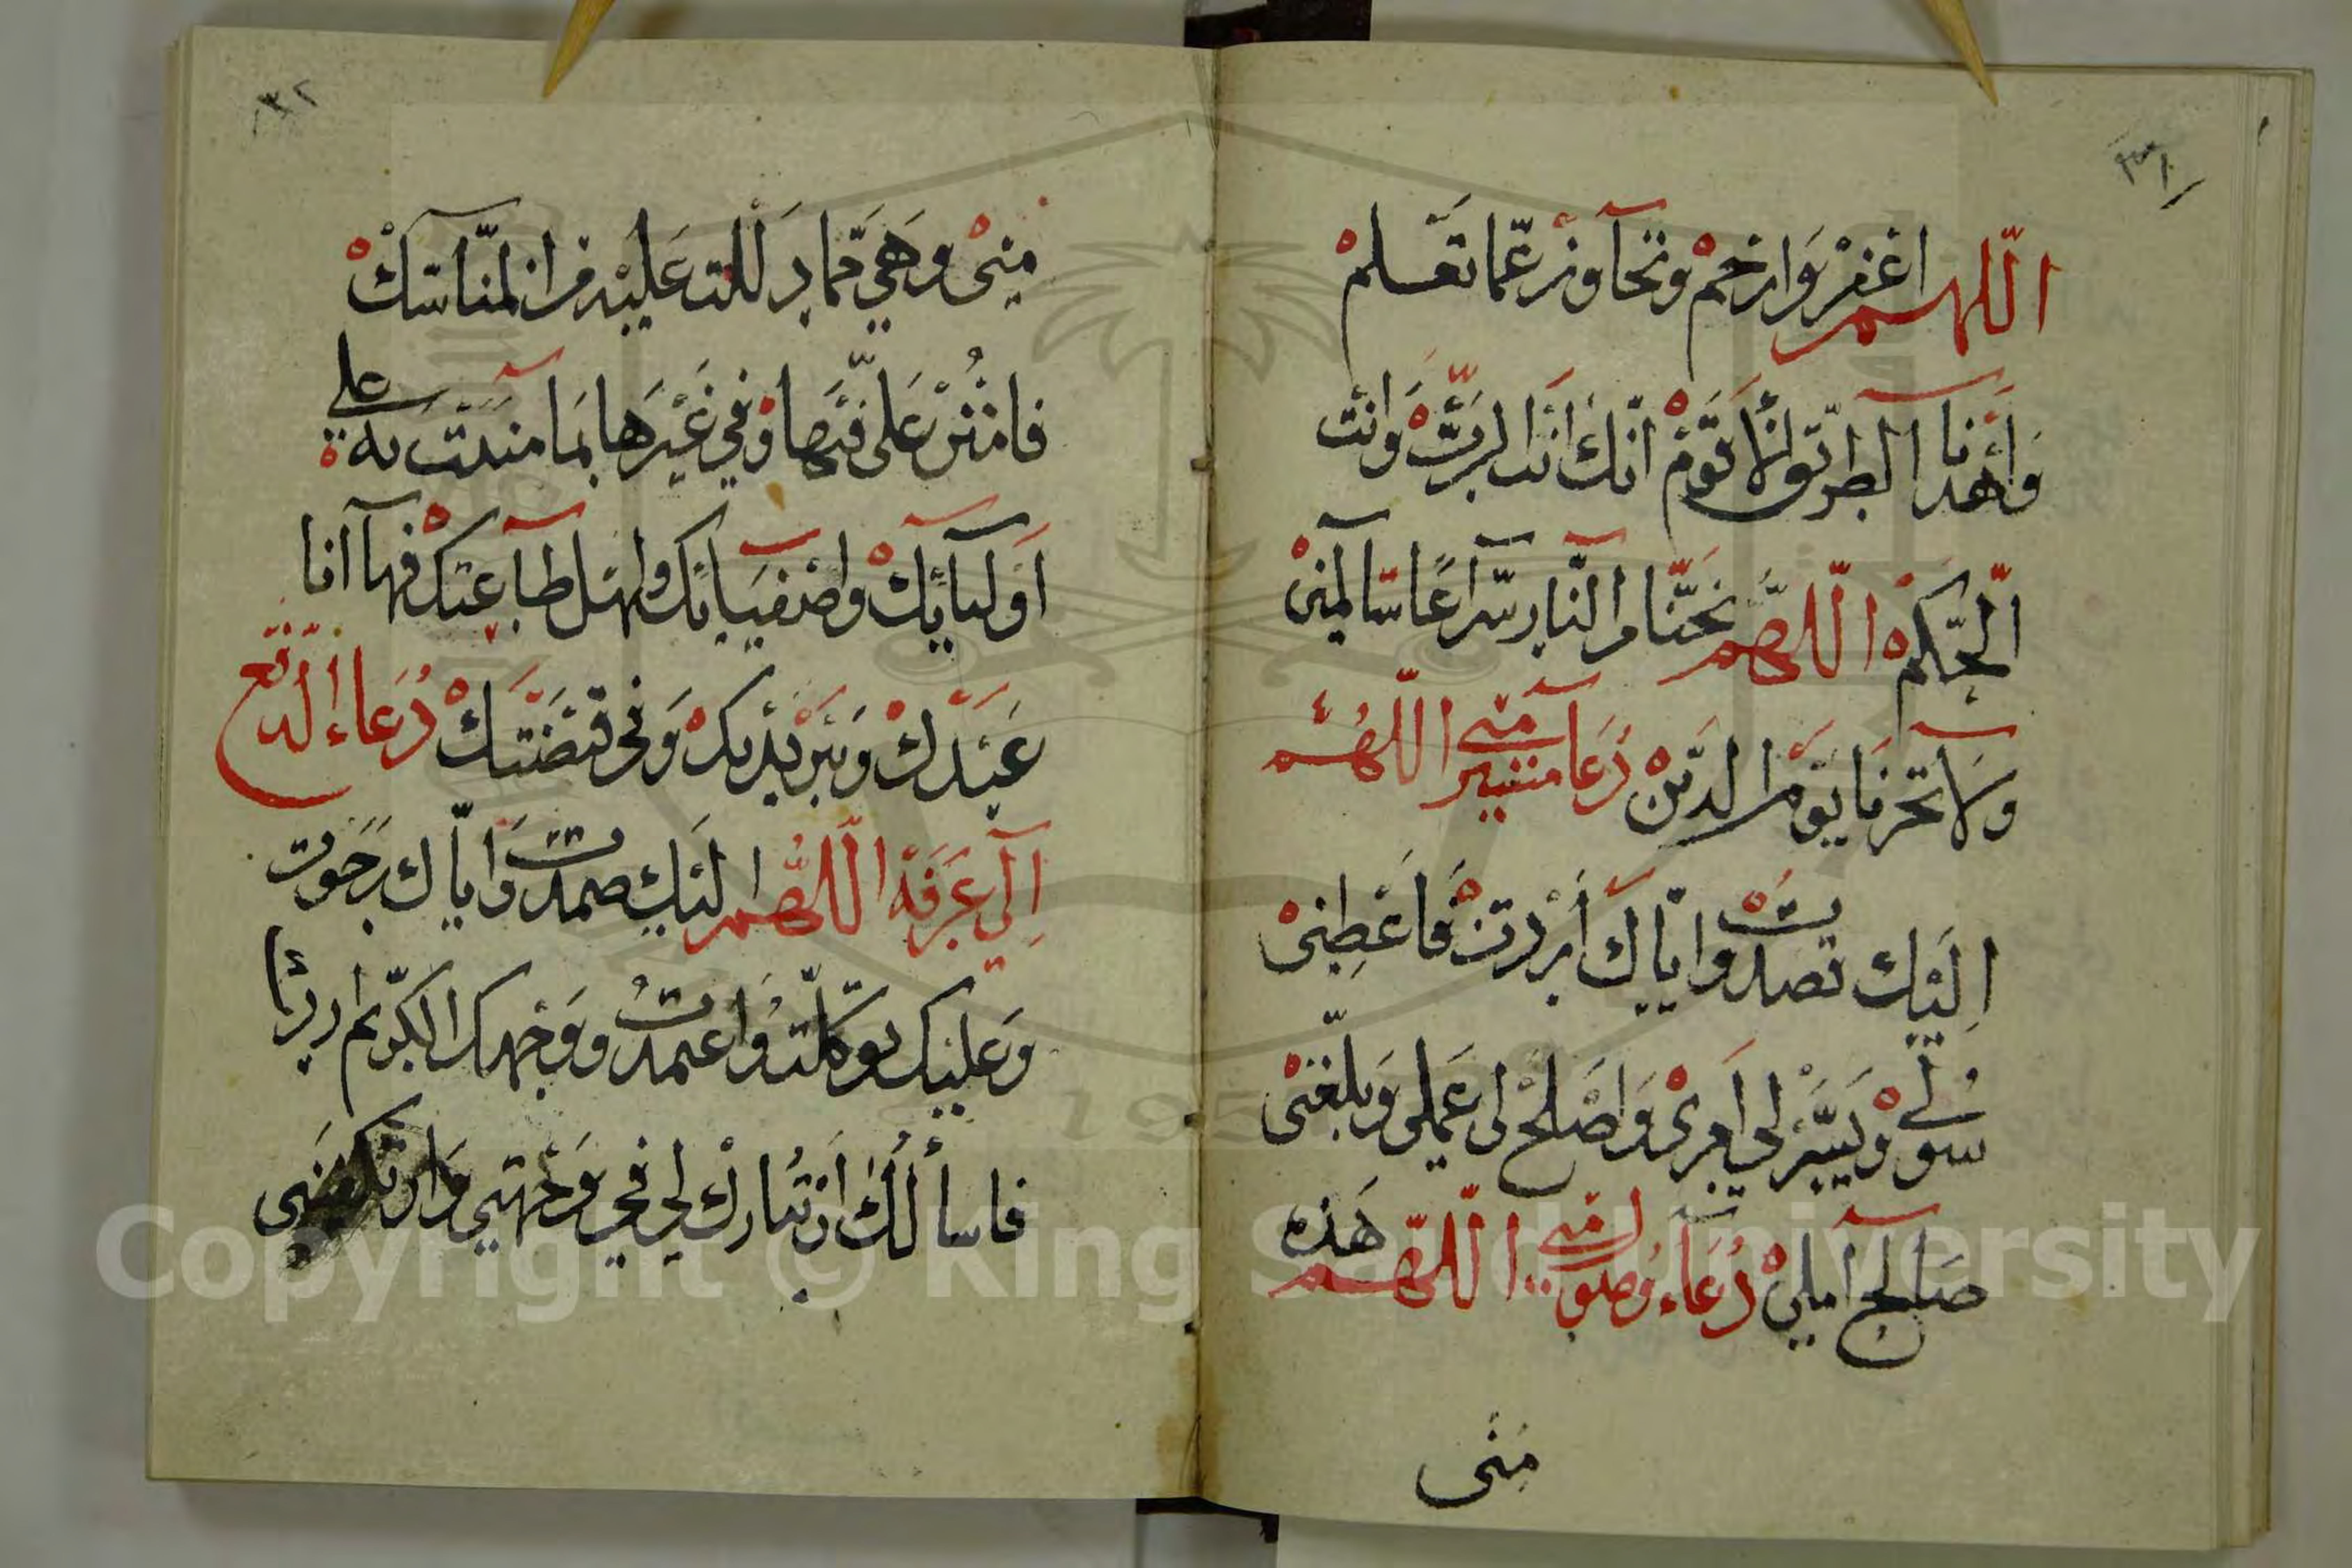 ٣١
اللهم اغفر وارحم وتجاوز عما تعلم
واهدنا الطريق الاقوم انك انت الرب وانت
الحكم اللهم نجنا من النار سراعا سالمين
ولا تخزنا يوم الدين دعا منى اللهم
اليك قصدت واياك اردت فاعطني
سولي ويسر لي امري واصلح لي عملي وبلغني
صالح املي دعاء وصول منى اللهم هذه
منى
٣٢
منى وهي مما دللت عليه من المناسك
فامنن علي فيها وفي غيرها بما مننت به على
اوليائك واصفيائك واهل طاعتك فها انا
عبدك وبين يديك وفي قبضتك دعاء الدفع
الى عرفة اللهم اليك صمدت واياك رجوت
وعليك توكلت واعتمدت ووجهك الكريم اردت
فاسألك ان تبارك لي في وجهتي وان تكفيني
Copyright © King Saud University
195